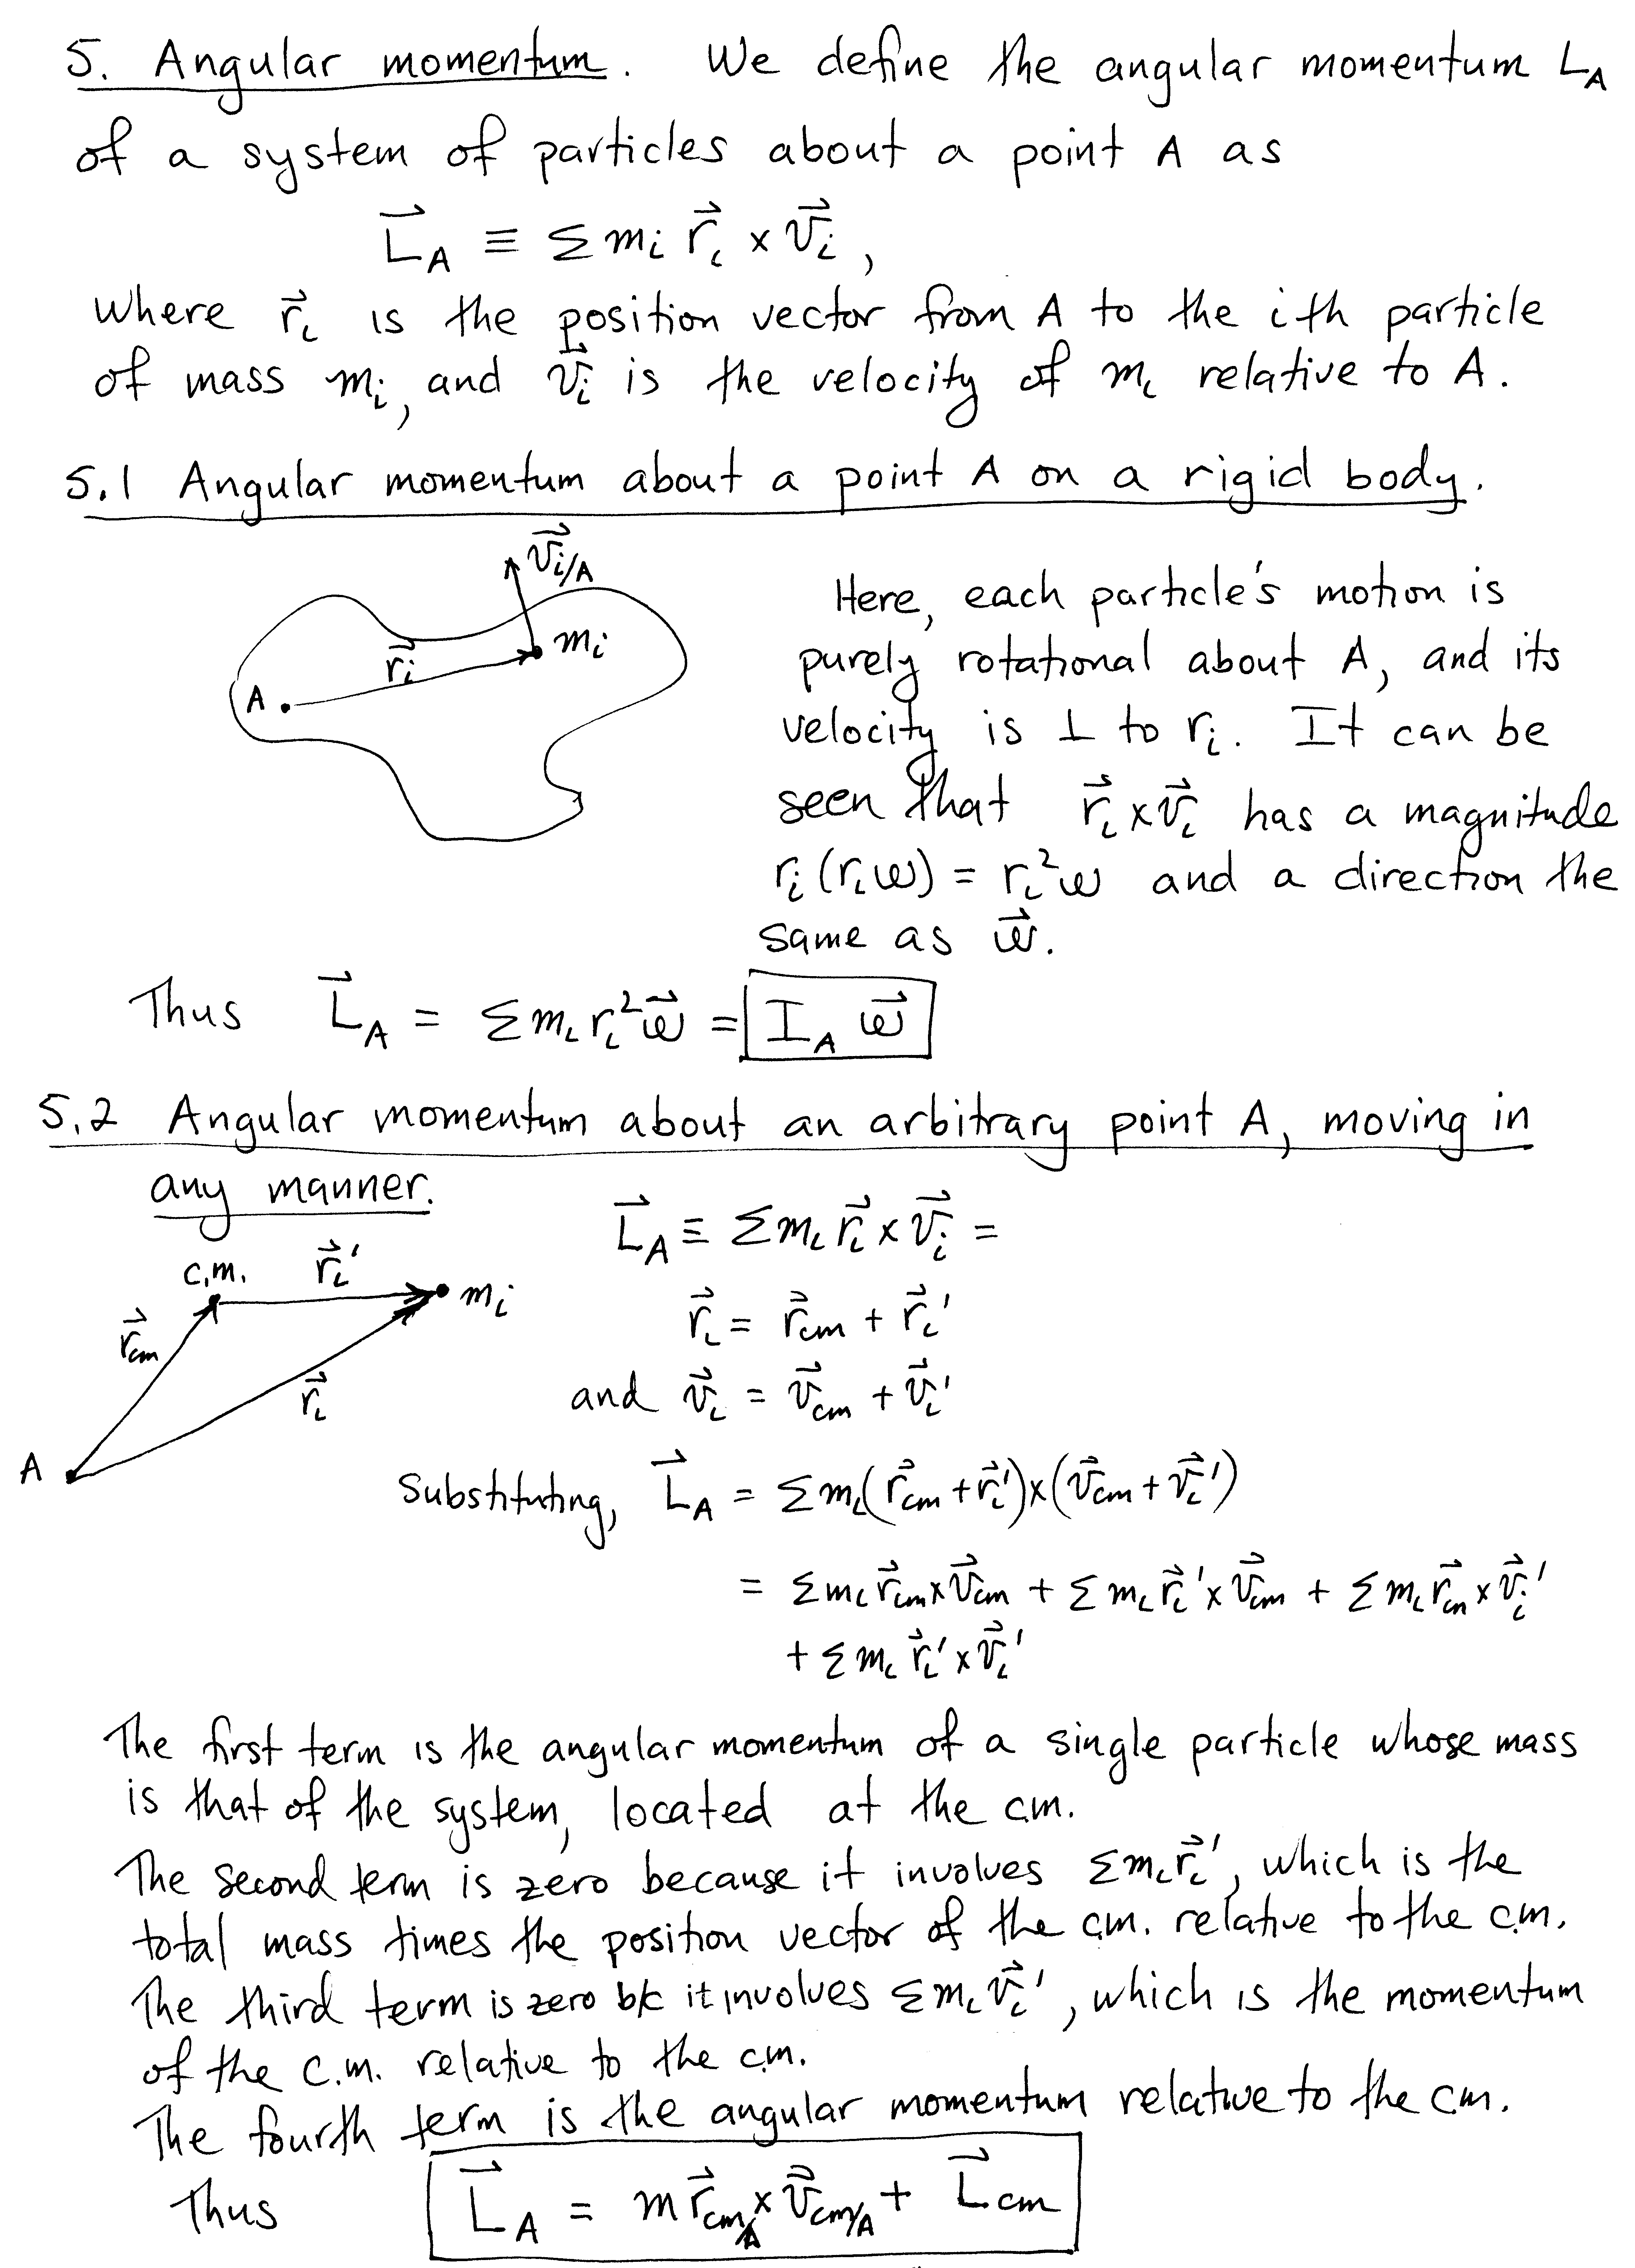 5. Angular momentum. We define the angular momentum L_A
of a system of particles about a point A as
L⃗_A ≡ Σ m_i r⃗_i × v⃗_i ,
where r⃗_i is the position vector from A to the ith particle
of mass m_i, and v⃗_i is the velocity of m_i relative to A.
5.1 Angular momentum about a point A on a rigid body.
v⃗_i/A
m_i
r⃗_i
A
Here, each particle's motion is
purely rotational about A, and its
velocity is ⊥ to r_i. It can be
seen that r⃗_i × v⃗_i has a magnitude
r_i (r_i ω) = r_i² ω and a direction the
same as ω⃗.
Thus L⃗_A = Σ m_i r_i² ω⃗ = I_A ω⃗
5.2 Angular momentum about an arbitrary point A, moving in
any manner.
L⃗_A ≡ Σ m_i r⃗_i × v⃗_i =
c.m. r⃗_i' m_i
r⃗_cm
r⃗_i
A
r⃗_i = r⃗_cm + r⃗_i'
and v⃗_i = v⃗_cm + v⃗_i'
Substituting, L⃗_A = Σ m_i (r⃗_cm + r⃗_i') × (v⃗_cm + v⃗_i')
= Σ m_i r⃗_cm × v⃗_cm + Σ m_i r⃗_i' × v⃗_cm + Σ m_i r⃗_cm × v⃗_i'
+ Σ m_i r⃗_i' × v⃗_i'
The first term is the angular momentum of a single particle whose mass
is that of the system, located at the cm.
The second term is zero because it involves Σ m_i r⃗_i', which is the
total mass times the position vector of the cm. relative to the cm.
The third term is zero b/c it involves Σ m_i v⃗_i', which is the momentum
of the c.m. relative to the cm.
The fourth term is the angular momentum relative to the cm.
Thus L⃗_A = m r⃗_cm/A × v⃗_cm/A + L⃗_cm